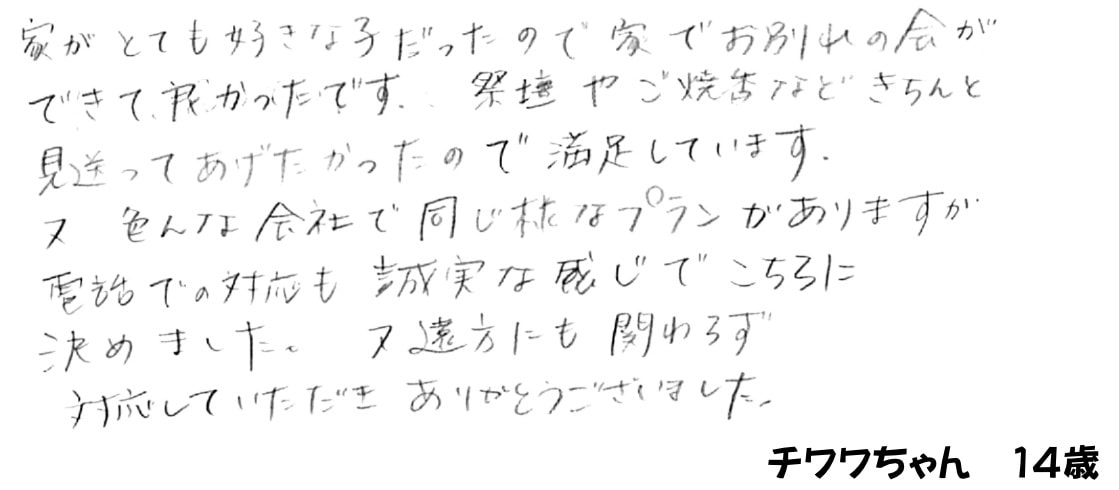 家がとても好きな子だったので家でお別れの会が
できて、良かったです。祭壇やご焼香などきちんと
見送ってあげたかったので満足しています。
又 色んな会社で同じ様なプランがありますが
電話での対応も誠実な感じでこちらに
決めました。 又遠方にも関わらず
対応していただきありがとうございました。
チワワちゃん 14歳